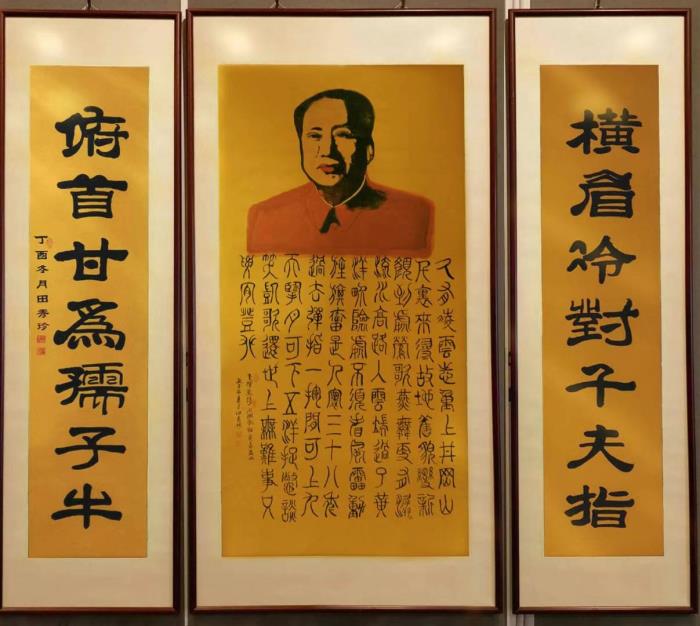 橫眉冷對千夫指
久有凌雲志重上井岡山
千里來尋故地舊貌變新
顏到處鶯歌燕舞更有潺
流水高路入雲端過了黃
洋界險處不須看風雷動
旌旗奮是人寰三十八年
過去彈指一揮間可上九
天攬月可下五洋捉鱉談
笑凱歌還世上無難事只
要肯登攀
俯首甘爲孺子牛
丁酉冬月田秀珍